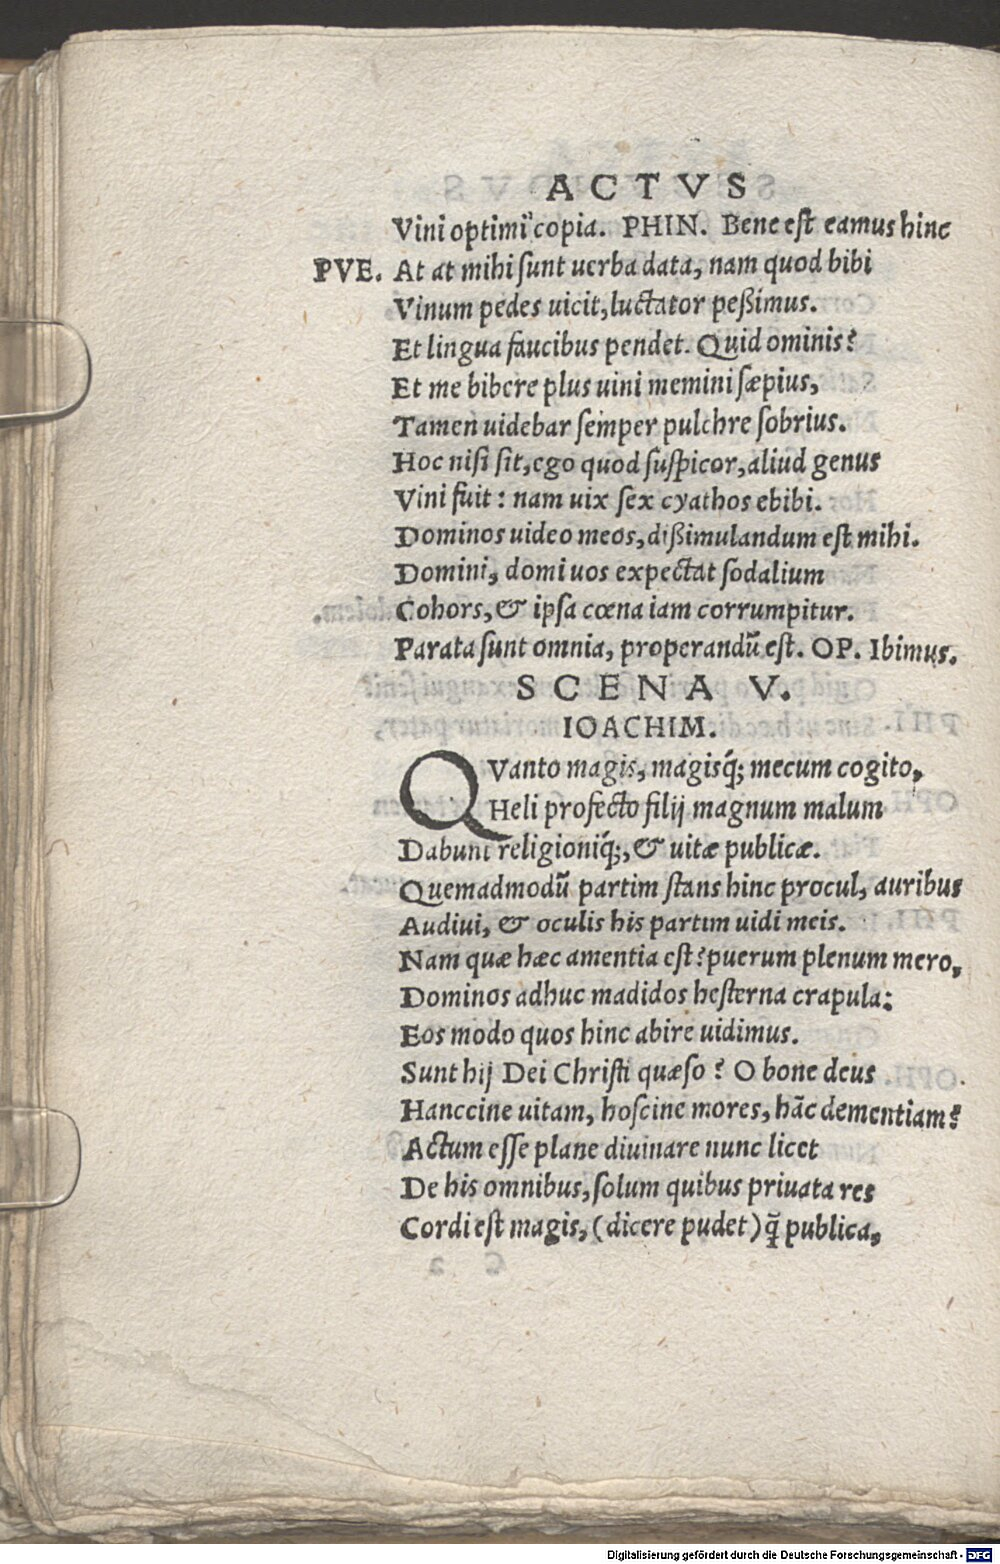 ACTVS
Vini optimi copia. PHIN. Bene est eamus hinc
PVE. At at mihi sunt uerba data, nam quod bibi
Vinum pedes uicit, luctator peßimus.
Et lingua faucibus pendet. Quid ominis?
Et me bibere plus uini memini sæpius,
Tamen uidebar semper pulchre sobrius.
Hoc nisi sit, ego quod suspicor, aliud genus
Vini fuit: nam uix sex cyathos ebibi.
Dominos uideo meos, dißimulandum est mihi.
Domini, domi uos expectat sodalium
Cohors, & ipsa cœna iam corrumpitur.
Parata sunt omnia, properandũ est. OP. Ibimus.
SCENA V.
IOACHIM.
QVanto magis, magisq́; mecum cogito,
Heli profecto filij magnum malum
Dabunt religioniq́;, & uitæ publicæ.
Quemadmodũ partim stans hinc procul, auribus
Audiui, & oculis his partim uidi meis.
Nam quæ hæc amentia est? puerum plenum mero,
Dominos adhuc madidos hesterna crapula:
Eos modo quos hinc abire uidimus.
Sunt hij Dei Christi quæso? O bone deus
Hanccine uitam, hoscine mores, hãc dementiam?
Actum esse plane diuinare nunc licet
De his omnibus, solum quibus priuata res
Cordi est magis, (dicere pudet) q̃ publica,
Digitalisierung gefördert durch die Deutsche Forschungsgemeinschaft - DFG